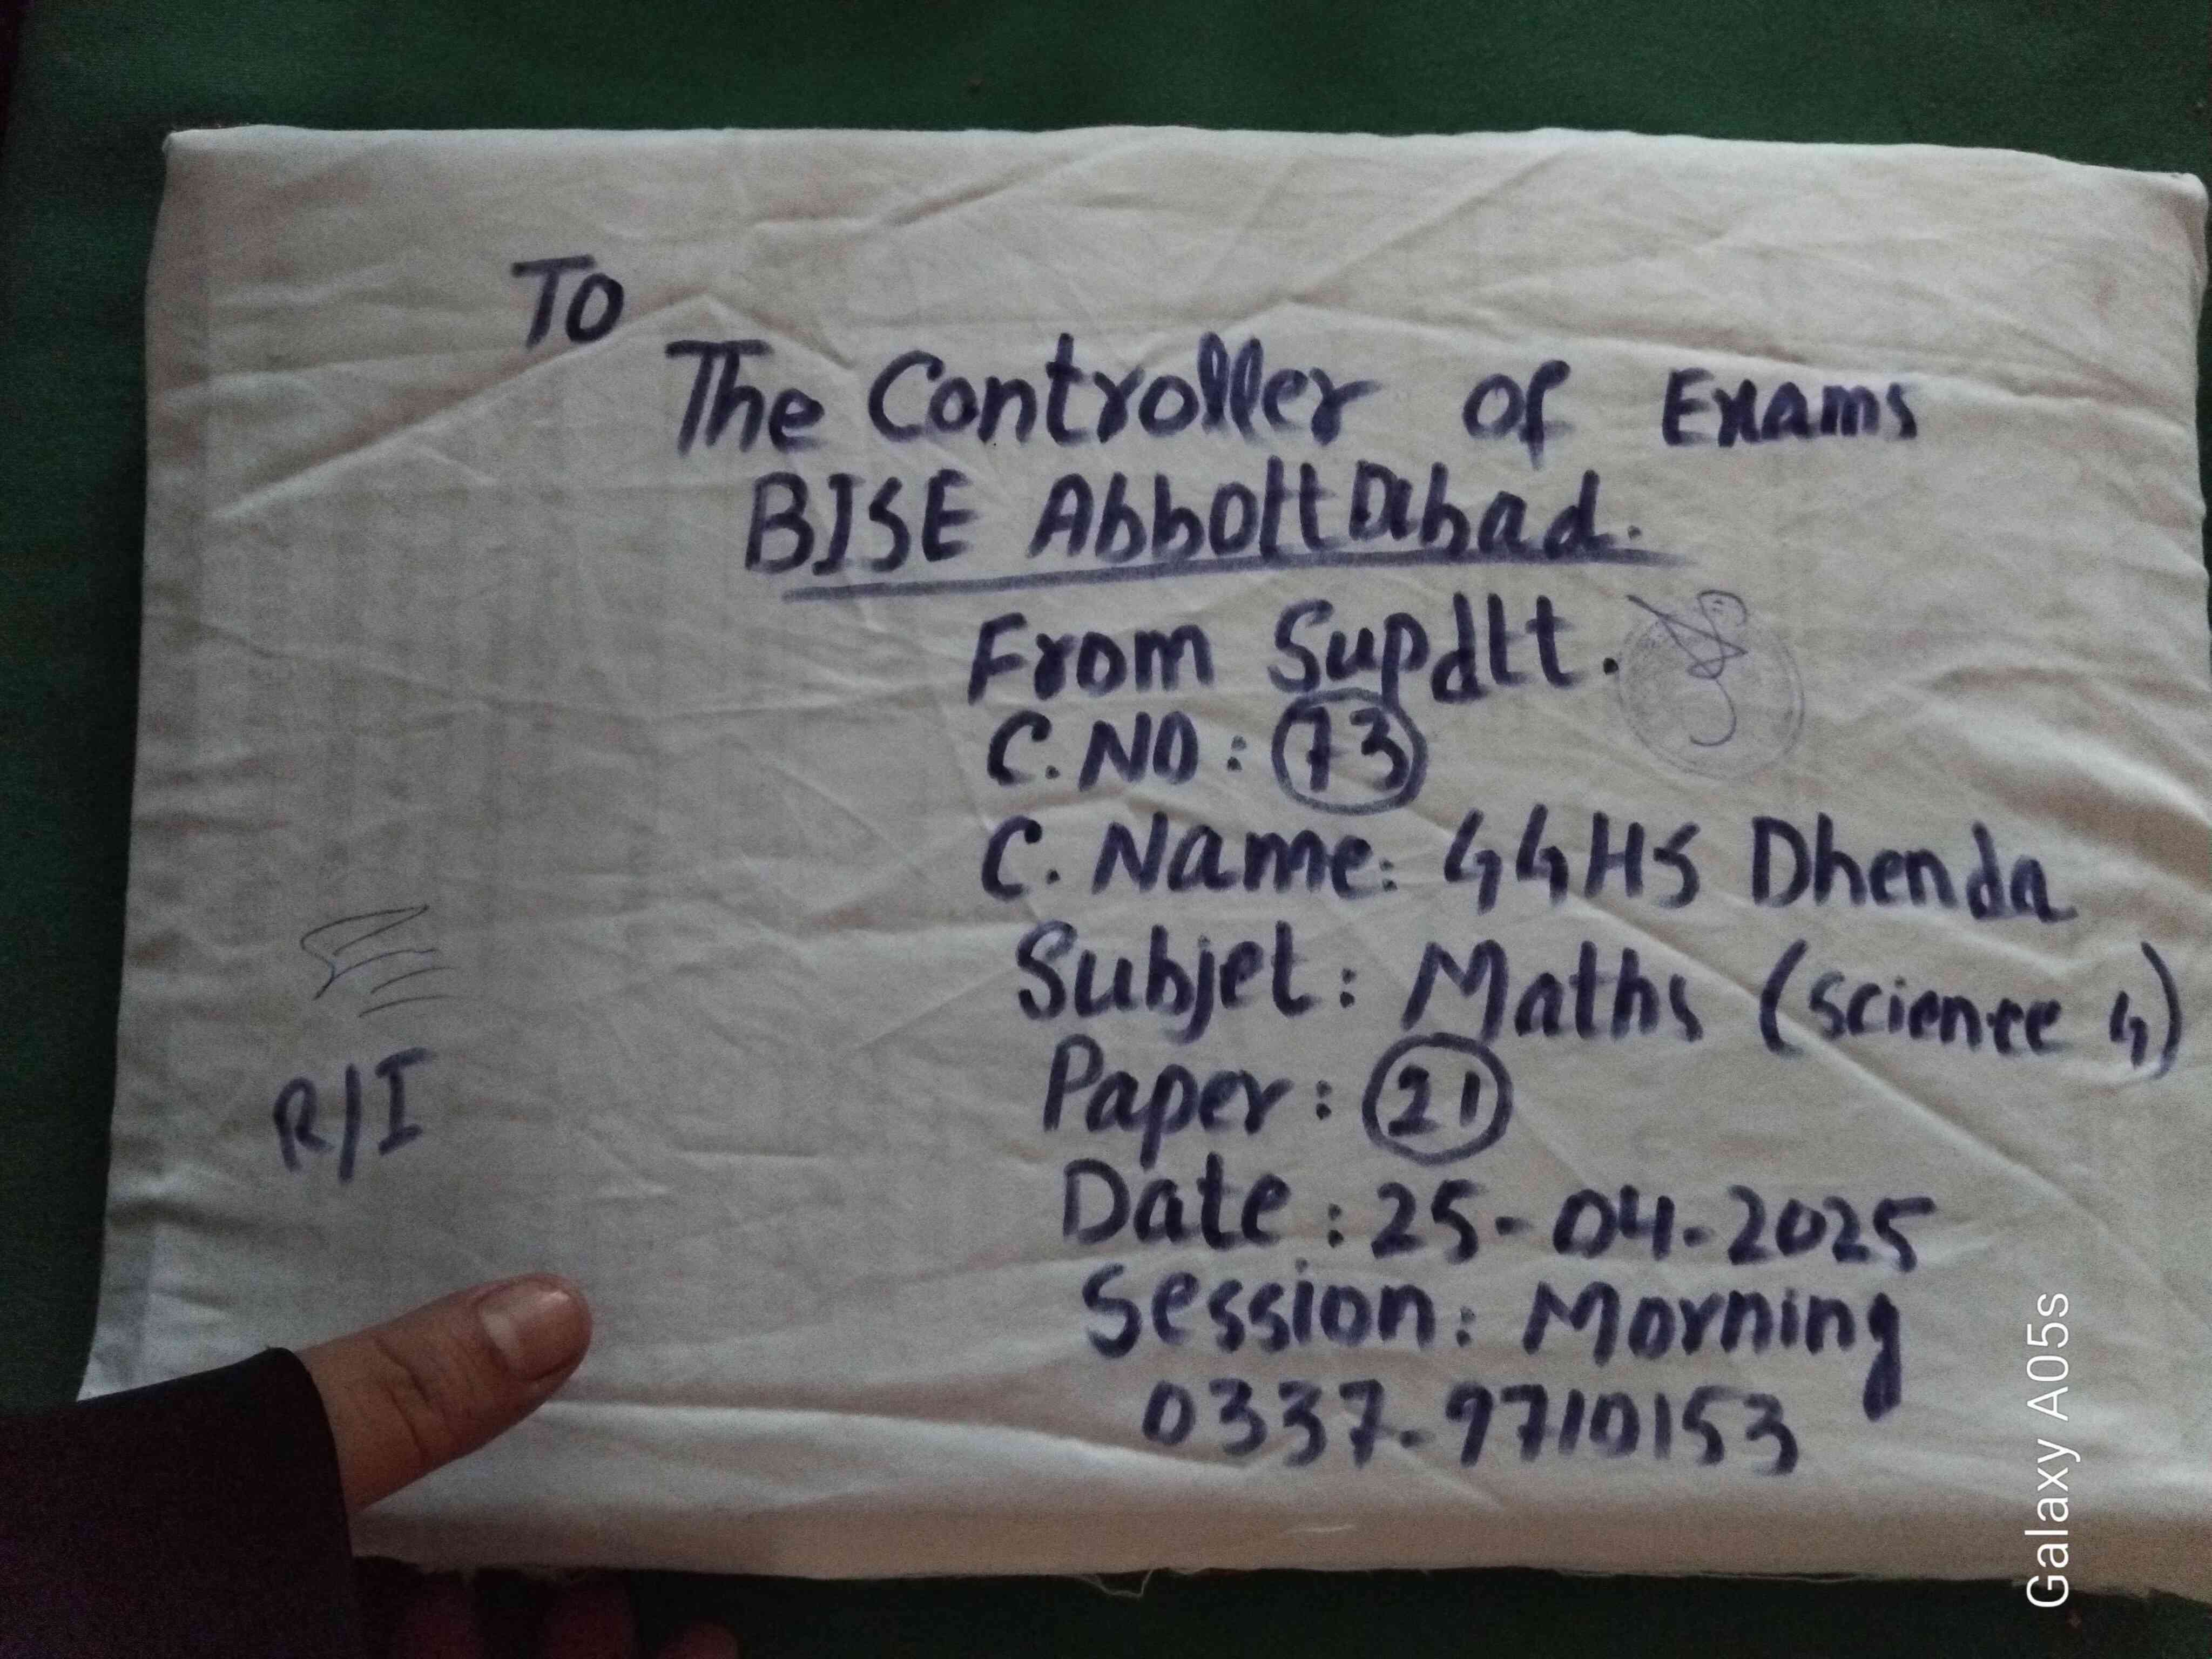 To
The Controller of Exams
BISE Abbottabad.
From Supdtt.
C.NO: 73
C. Name: GGHS Dhenda
Subjet: Maths (science G)
Paper: 21
Date: 25-04-2025
Session: Morning
0337-9710153
R/I
Galaxy A05s